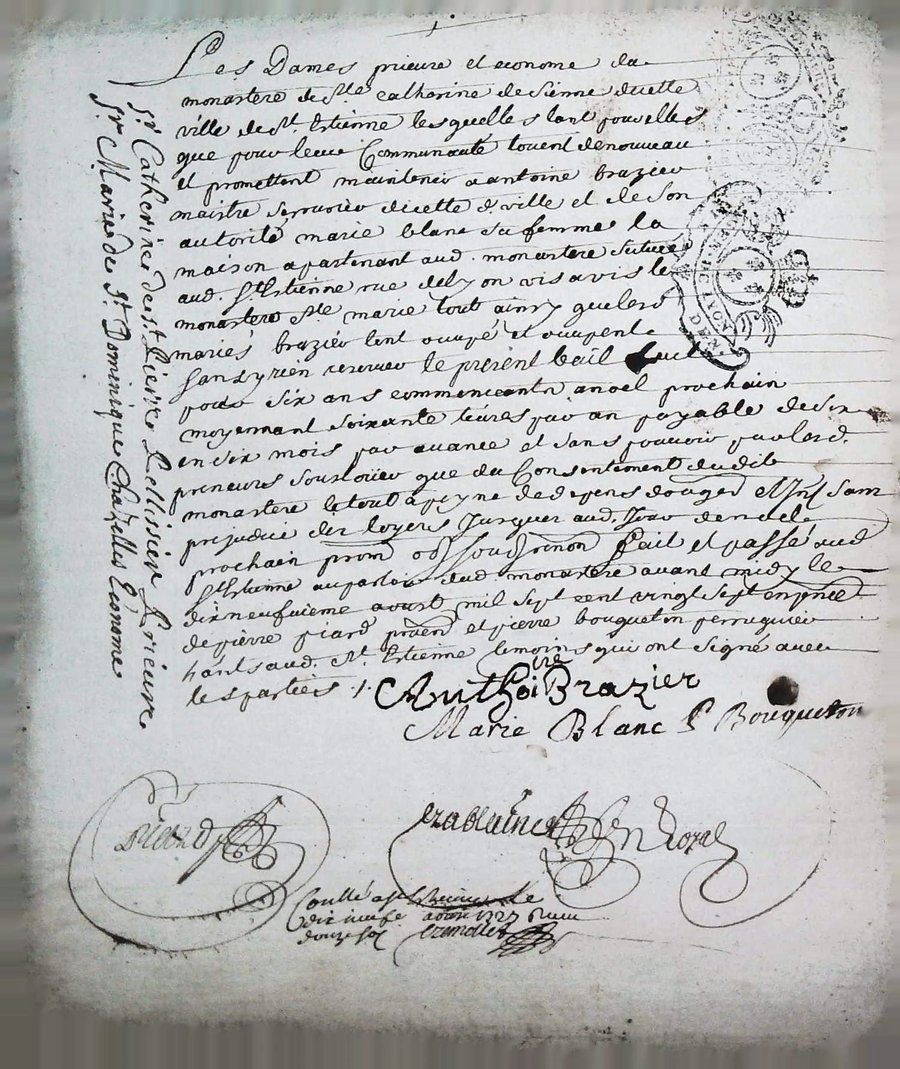 Les Dames prieure et econome du
monastere de Ste catherine de sienne de cette
ville de St. Estienne lesquelles tant pour elles
que pour leur Communauté louent de nouveau
et promettent maintenir a antoine brazier
maistre serrurier de cette d. ville et de son
autorité marie blanc sa femme la
maison apartenant aud. monastere scituée
aud. St Estienne rue de lyon vis a vis le
monastere Ste marie tout ainsy que lesd
mariés brazier lont ocupé et ocupent
sans y rien reserver le present bail fait
pour six ans commenceant a noel prochain
moyennant soixante livres par an payable de six
en six mois par avance et sans pouvoir par lesd.
preneurs sousloüer que du Consentement dudit
monastere le tout a peyne de depens domages et sans
prejudice des loyers jusques aud. jour de noel
prochain fait et passé aud
St Estienne au parloir dud monastere avant midy le
dixneufvieme aoust mil sept cent vingt sept en pnce
de pierre piard et pierre bouqueton perruquier
aud. St. Estienne temoins qui ont signé avec
les parties /.
Anthoine Brazier
Marie Blanc P Bouqueton
Sr Catherine de St. Pierre Pellissier Prieure
Sr Marie de St Dominique Chazelles Econome
piard
n Royal
Conllé a St Estienne le
dix neufe aoust 1727
douze sol